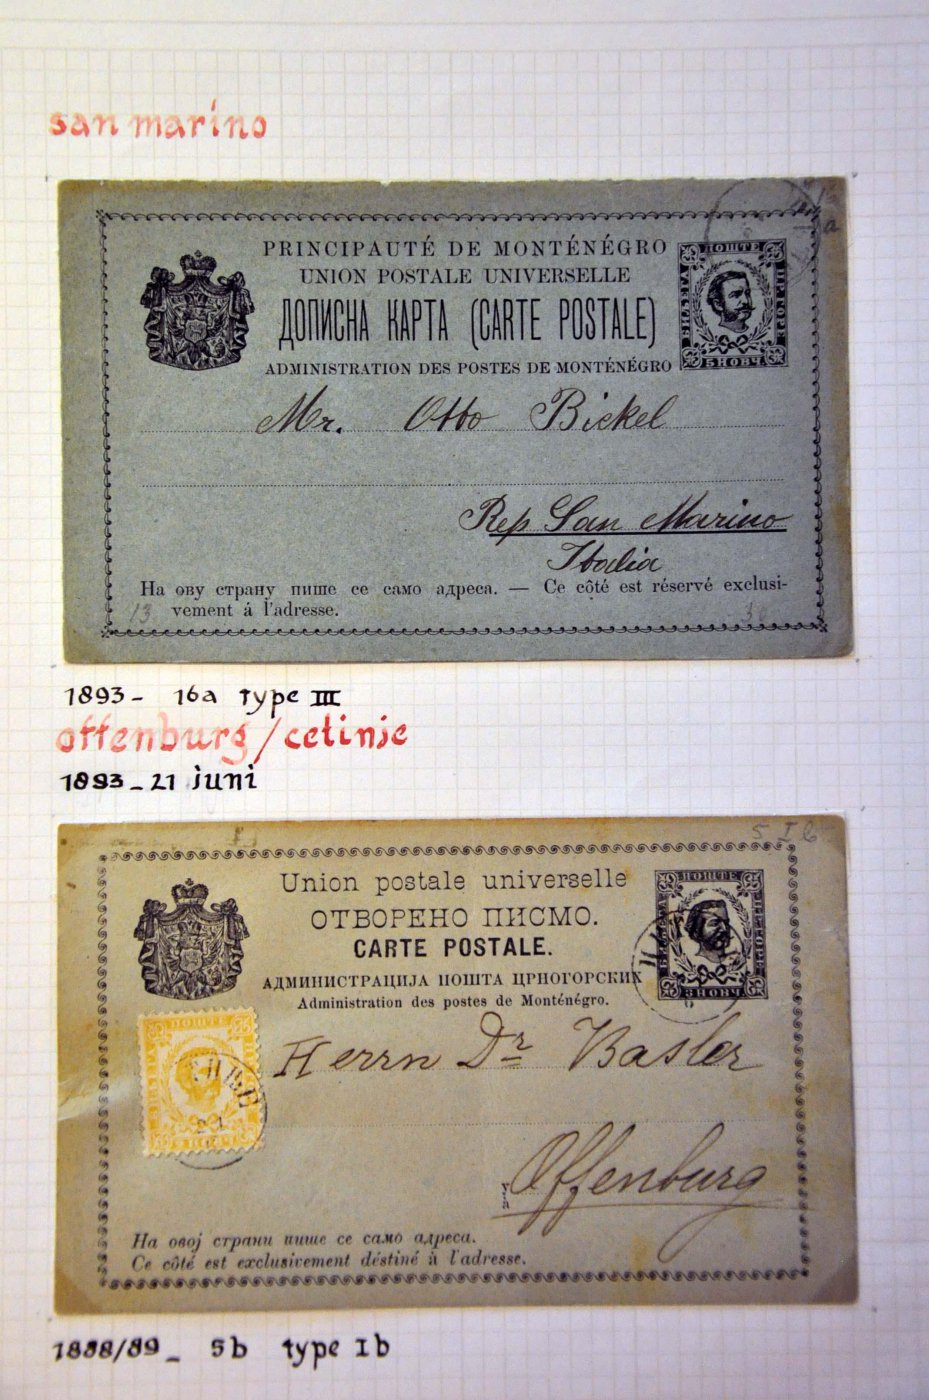 san marino
PRINCIPAUTÉ DE MONTÉNÉGRO
UNION POSTALE UNIVERSELLE
ДОПИСНА КАРТА (CARTE POSTALE)
ADMINISTRATION DES POSTES DE MONTÉNÉGRO
ПОШТЕ
Mr. Otto Bickel
Rep San Marino
Italia
На ову страну пише се само адреса. — Ce côté est réservé exclusi-
vement á l'adresse.
13
1893- 16a type III
offenburg/cetinje
1893-21 juni
5 I b
Union postale universelle
ОТВОРЕНО ПИСМО.
CARTE POSTALE.
АДМИНИСТРАЦИЈА ПОШТА ЦРНОГОРСКИХ
Administration des postes de Monténégro.
ПОШТЕ
ПОШТЕ
Herrn Dr Basler
Offenburg
На овој страни пише се само адреса.
Ce côté est exclusivement déstiné à l'adresse.
1888/89_ 5b type Ib